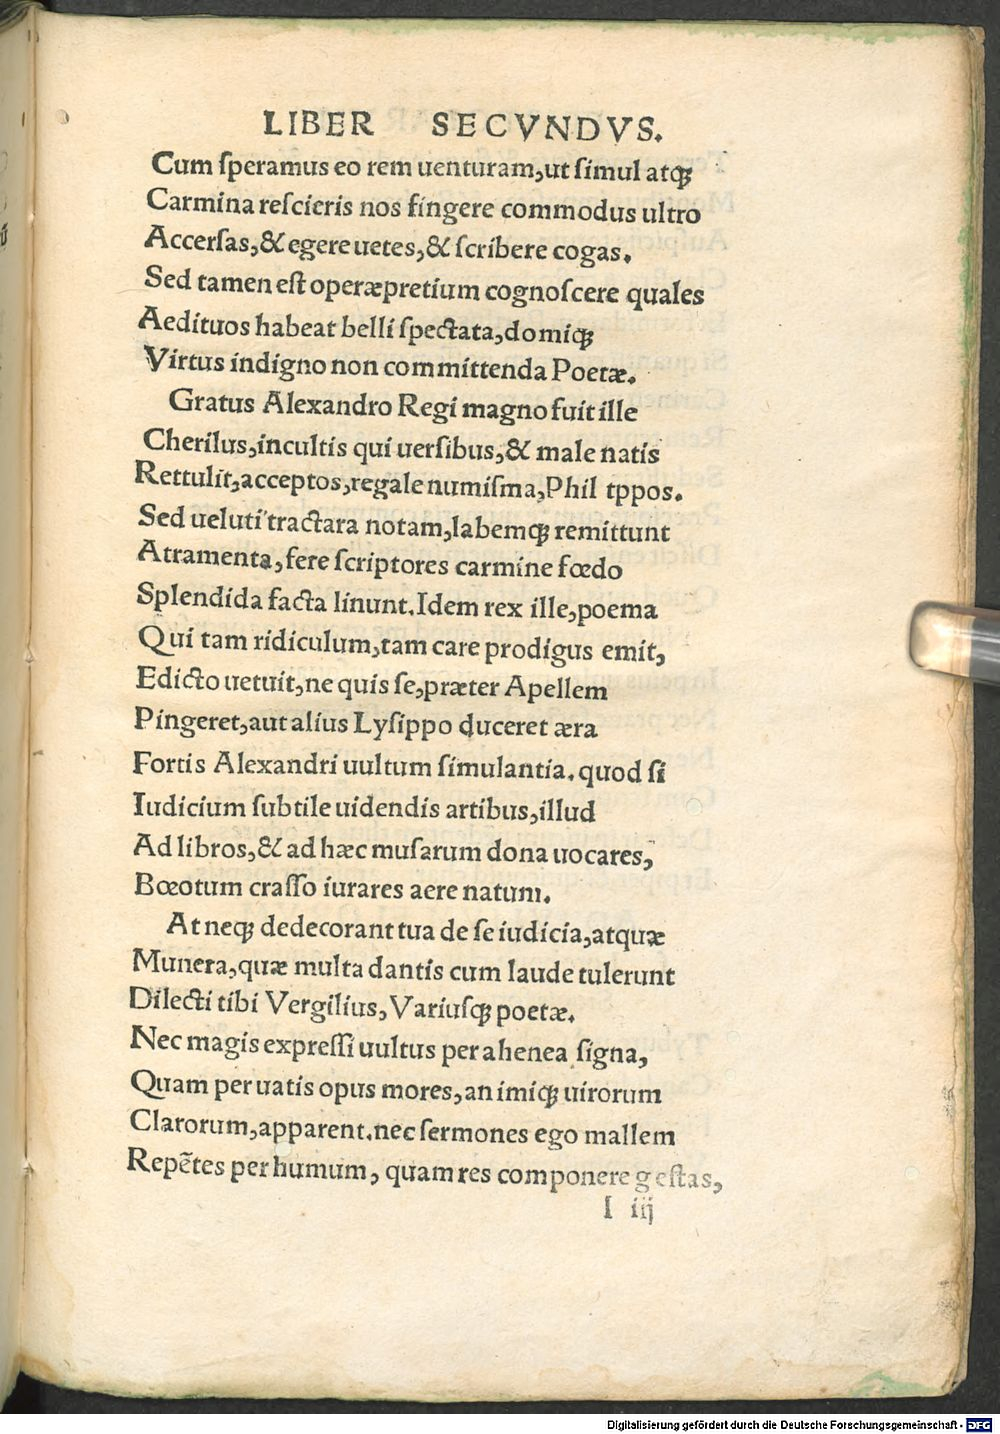 LIBER SECVNDVS.
Cum ſperamus eo rem uenturam,ut ſimul atqꝫ
Carmina reſcieris nos fingere commodus ultro
Accerſas,& egere uetes,& ſcribere cogas.
Sed tamen eſt operæpretium cognoſcere quales
Aedituos habeat belli ſpectata,domiqꝫ
Virtus indigno non committenda Poetæ.
Gratus Alexandro Regi magno fuit ille
Cherilus,incultis qui uerſibus,& male natis
Rettulit,acceptos,regale numiſma,Phil tppos.
Sed ueluti tractara notam,labemqꝫ remittunt
Atramenta,fere ſcriptores carmine fœdo
Splendida facta linunt.Idem rex ille,poema
Qui tam ridiculum,tam care prodigus emit,
Edicto uetuit,ne quis ſe,præter Apellem
Pingeret,aut alius Lyſippo duceret æra
Fortis Alexandri uultum ſimulantia.quod ſi
Iudicium ſubtile uidendis artibus,illud
Ad libros,& ad hæc muſarum dona uocares,
Bœotum craſſo iurares aere natum.
At neqꝫ dedecorant tua de ſe iudicia,atquæ
Munera,quæ multa dantis cum laude tulerunt
Dilecti tibi Vergilius,Variuſqꝫ poetæ.
Nec magis expreſſi uultus per ahenea ſigna,
Quam per uatis opus mores,animiqꝫ uirorum
Clarorum,apparent.nec ſermones ego mallem
Repẽtes per humum, quam res componere geſtas,
I iij
Digitalisierung gefördert durch die Deutsche Forschungsgemeinschaft - DFG